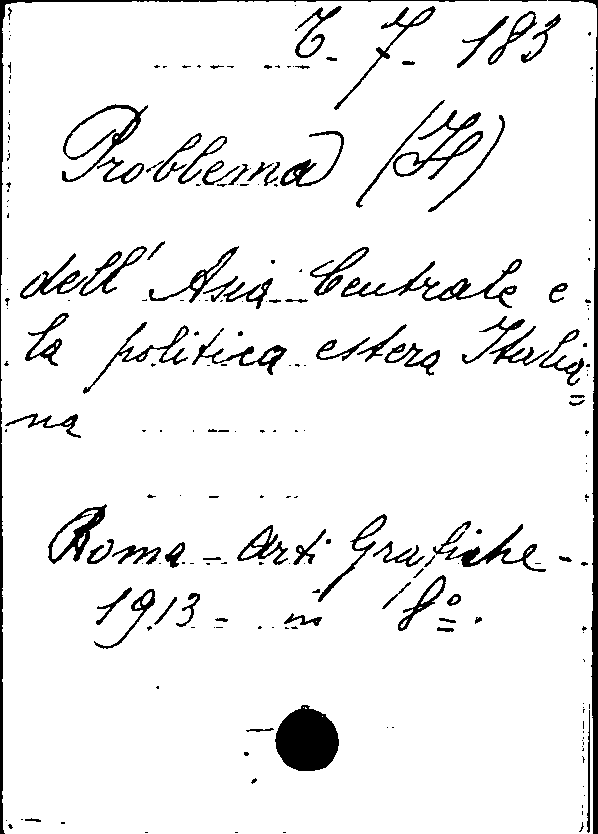 6-7-183
Problema (Il)
dell' Asia Centrale e
la politica estera Italia=
na
Roma - Arti Grafiche -
1913 - in 8º.